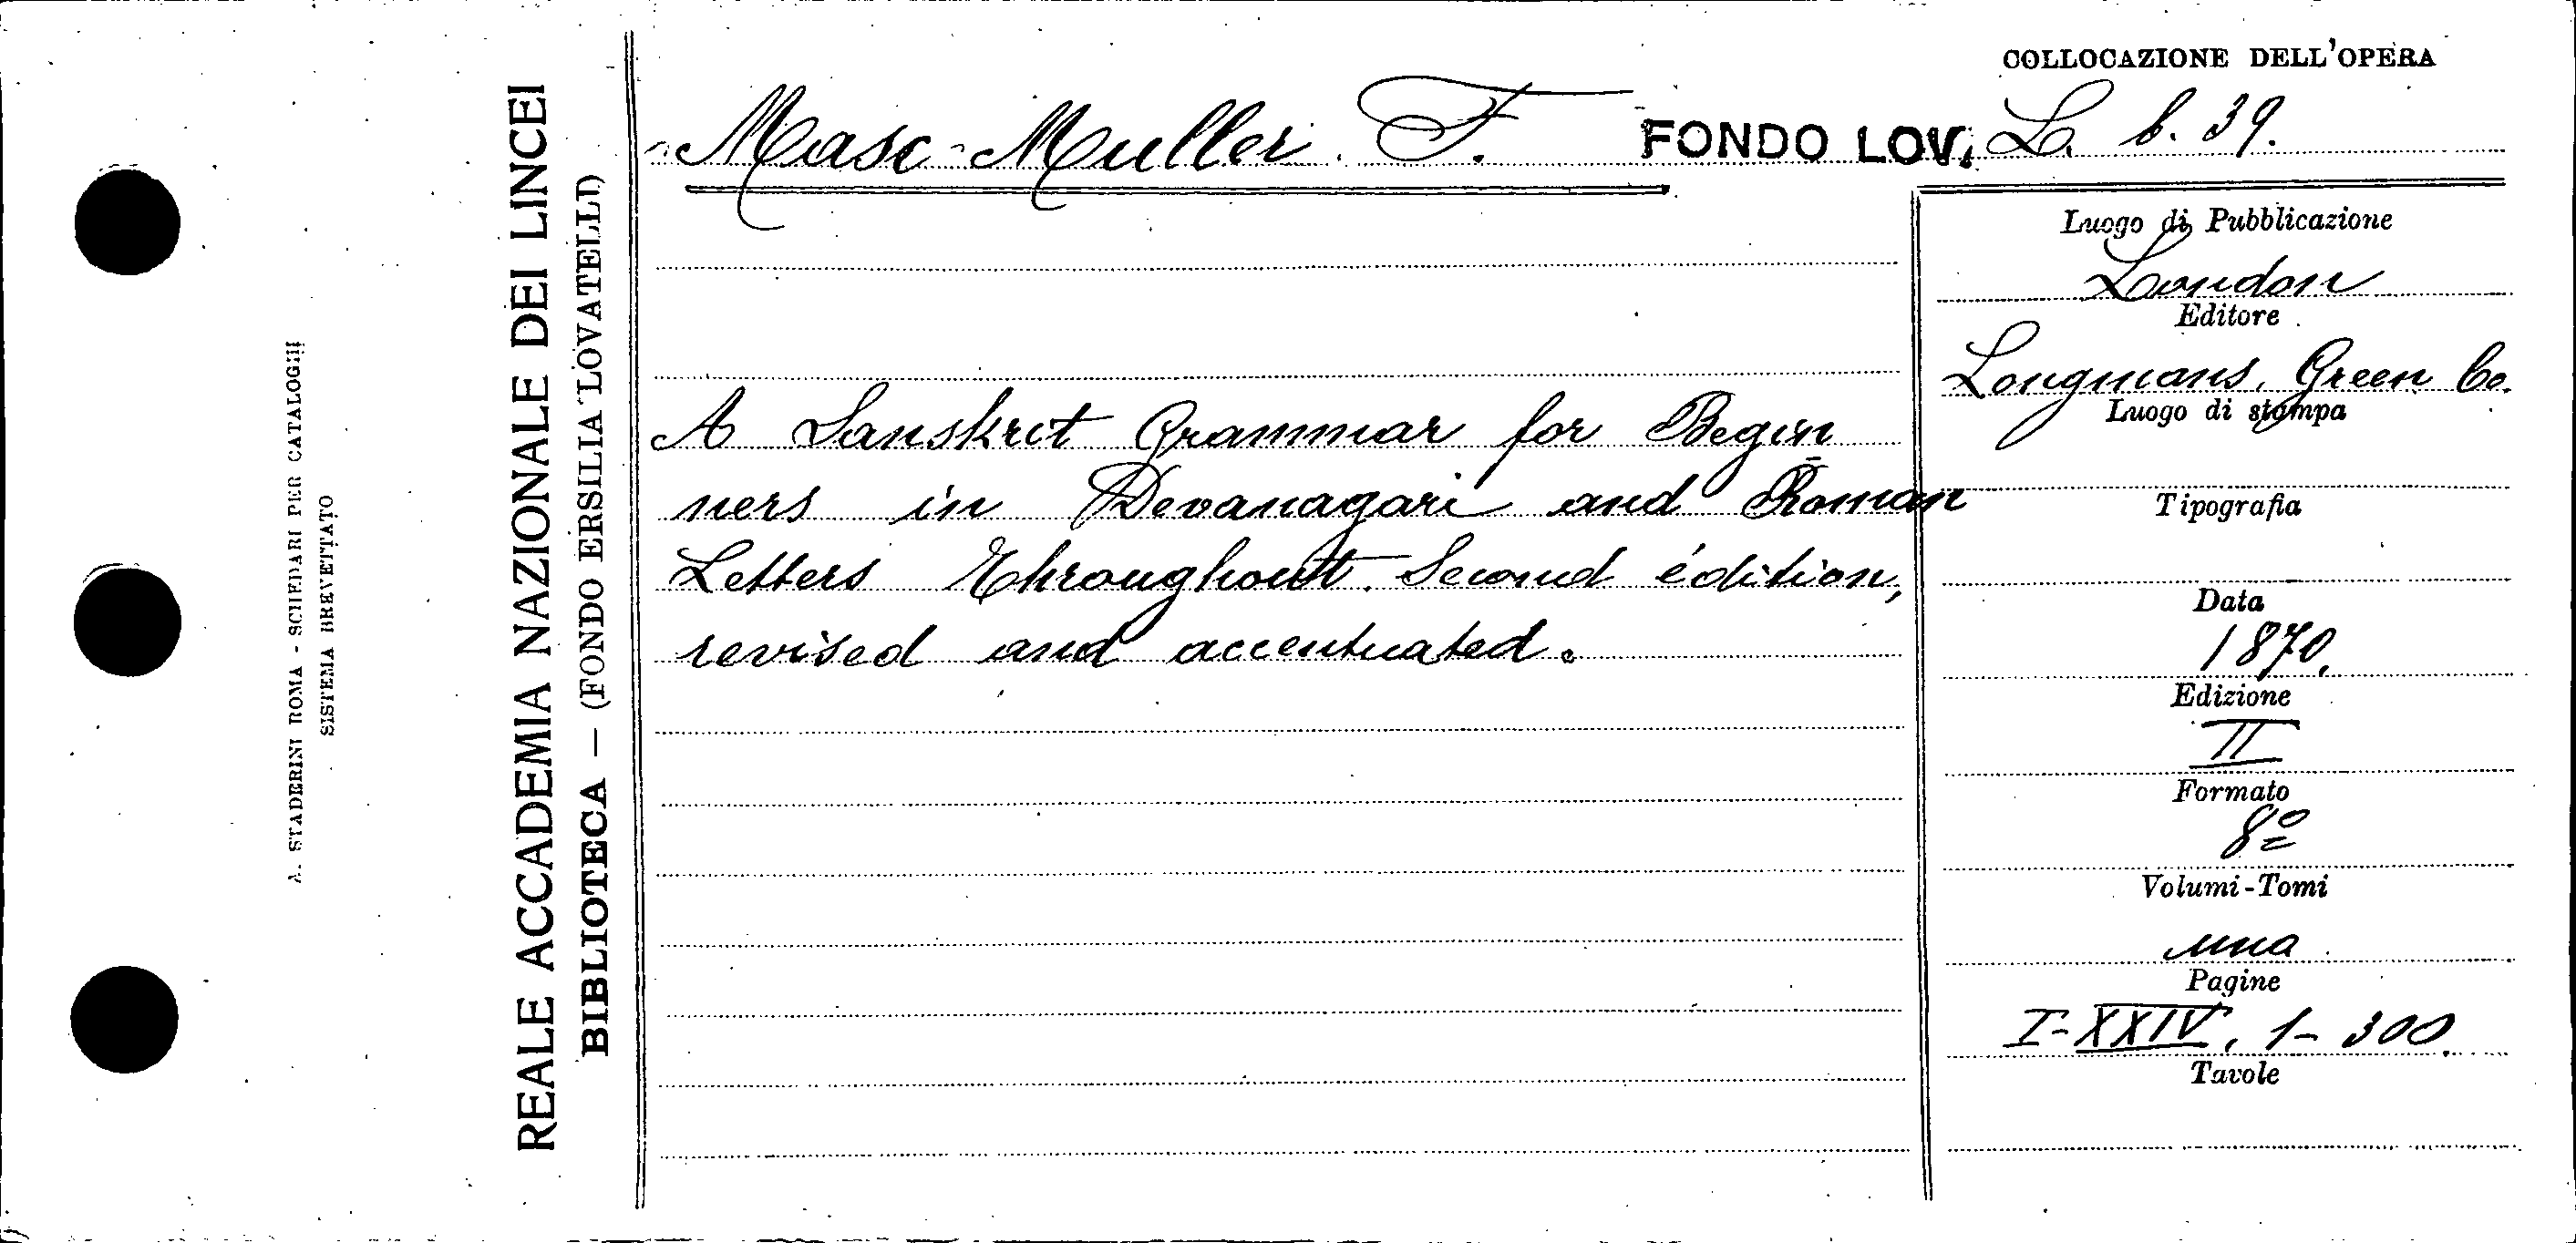 COLLOCAZIONE DELL'OPERA
Masc-Muller. F. FONDO LOV. L. b. 39.
A Sanskrit Grammar for Begin
ners in Devanagari and Roman
Letters Throughout. Second édition,
revised and accentuated.
Luogo di Pubblicazione
London
Editore
Longmans, Green Co.
Luogo di stampa
Tipografia
Data
1870.
Edizione
II
Formato
8º
Volumi-Tomi
una
Pagine
I-XXIV, 1-300.
Tavole
REALE ACCADEMIA NAZIONALE DEI LINCEI
BIBLIOTECA — (FONDO ERSILIA LOVATELLI)
A. STADERINI ROMA - SCHEDARI PER CATALOGHI
SISTEMA BREVETTATO